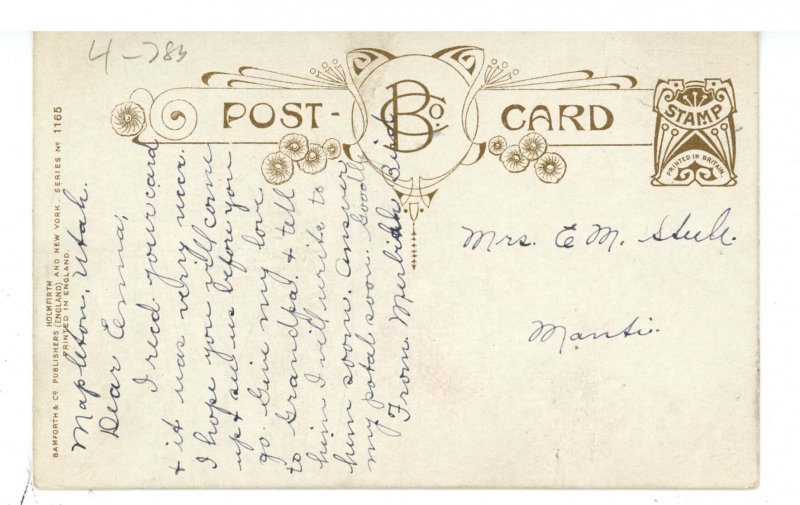 4-783
POST-
BCo
CARD
STAMP
PRINTED IN BRITAIN.
BAMFORTH & Co PUBLISHERS (ENGLAND) AND NEW YORK. SERIES No 1165
HOLMFIRTH
PRINTED IN ENGLAND.
Mapleton, Utah.
Dear Emma,
I recd your card
+ it was veriy nice.
I hope you will come
up + see us before you
go. Give my love
to Grandpa. + tell
him I will write to
him soon. answer
my potal soon. Goodby
From Bird
Mrs. E M. Steele.
Manti.